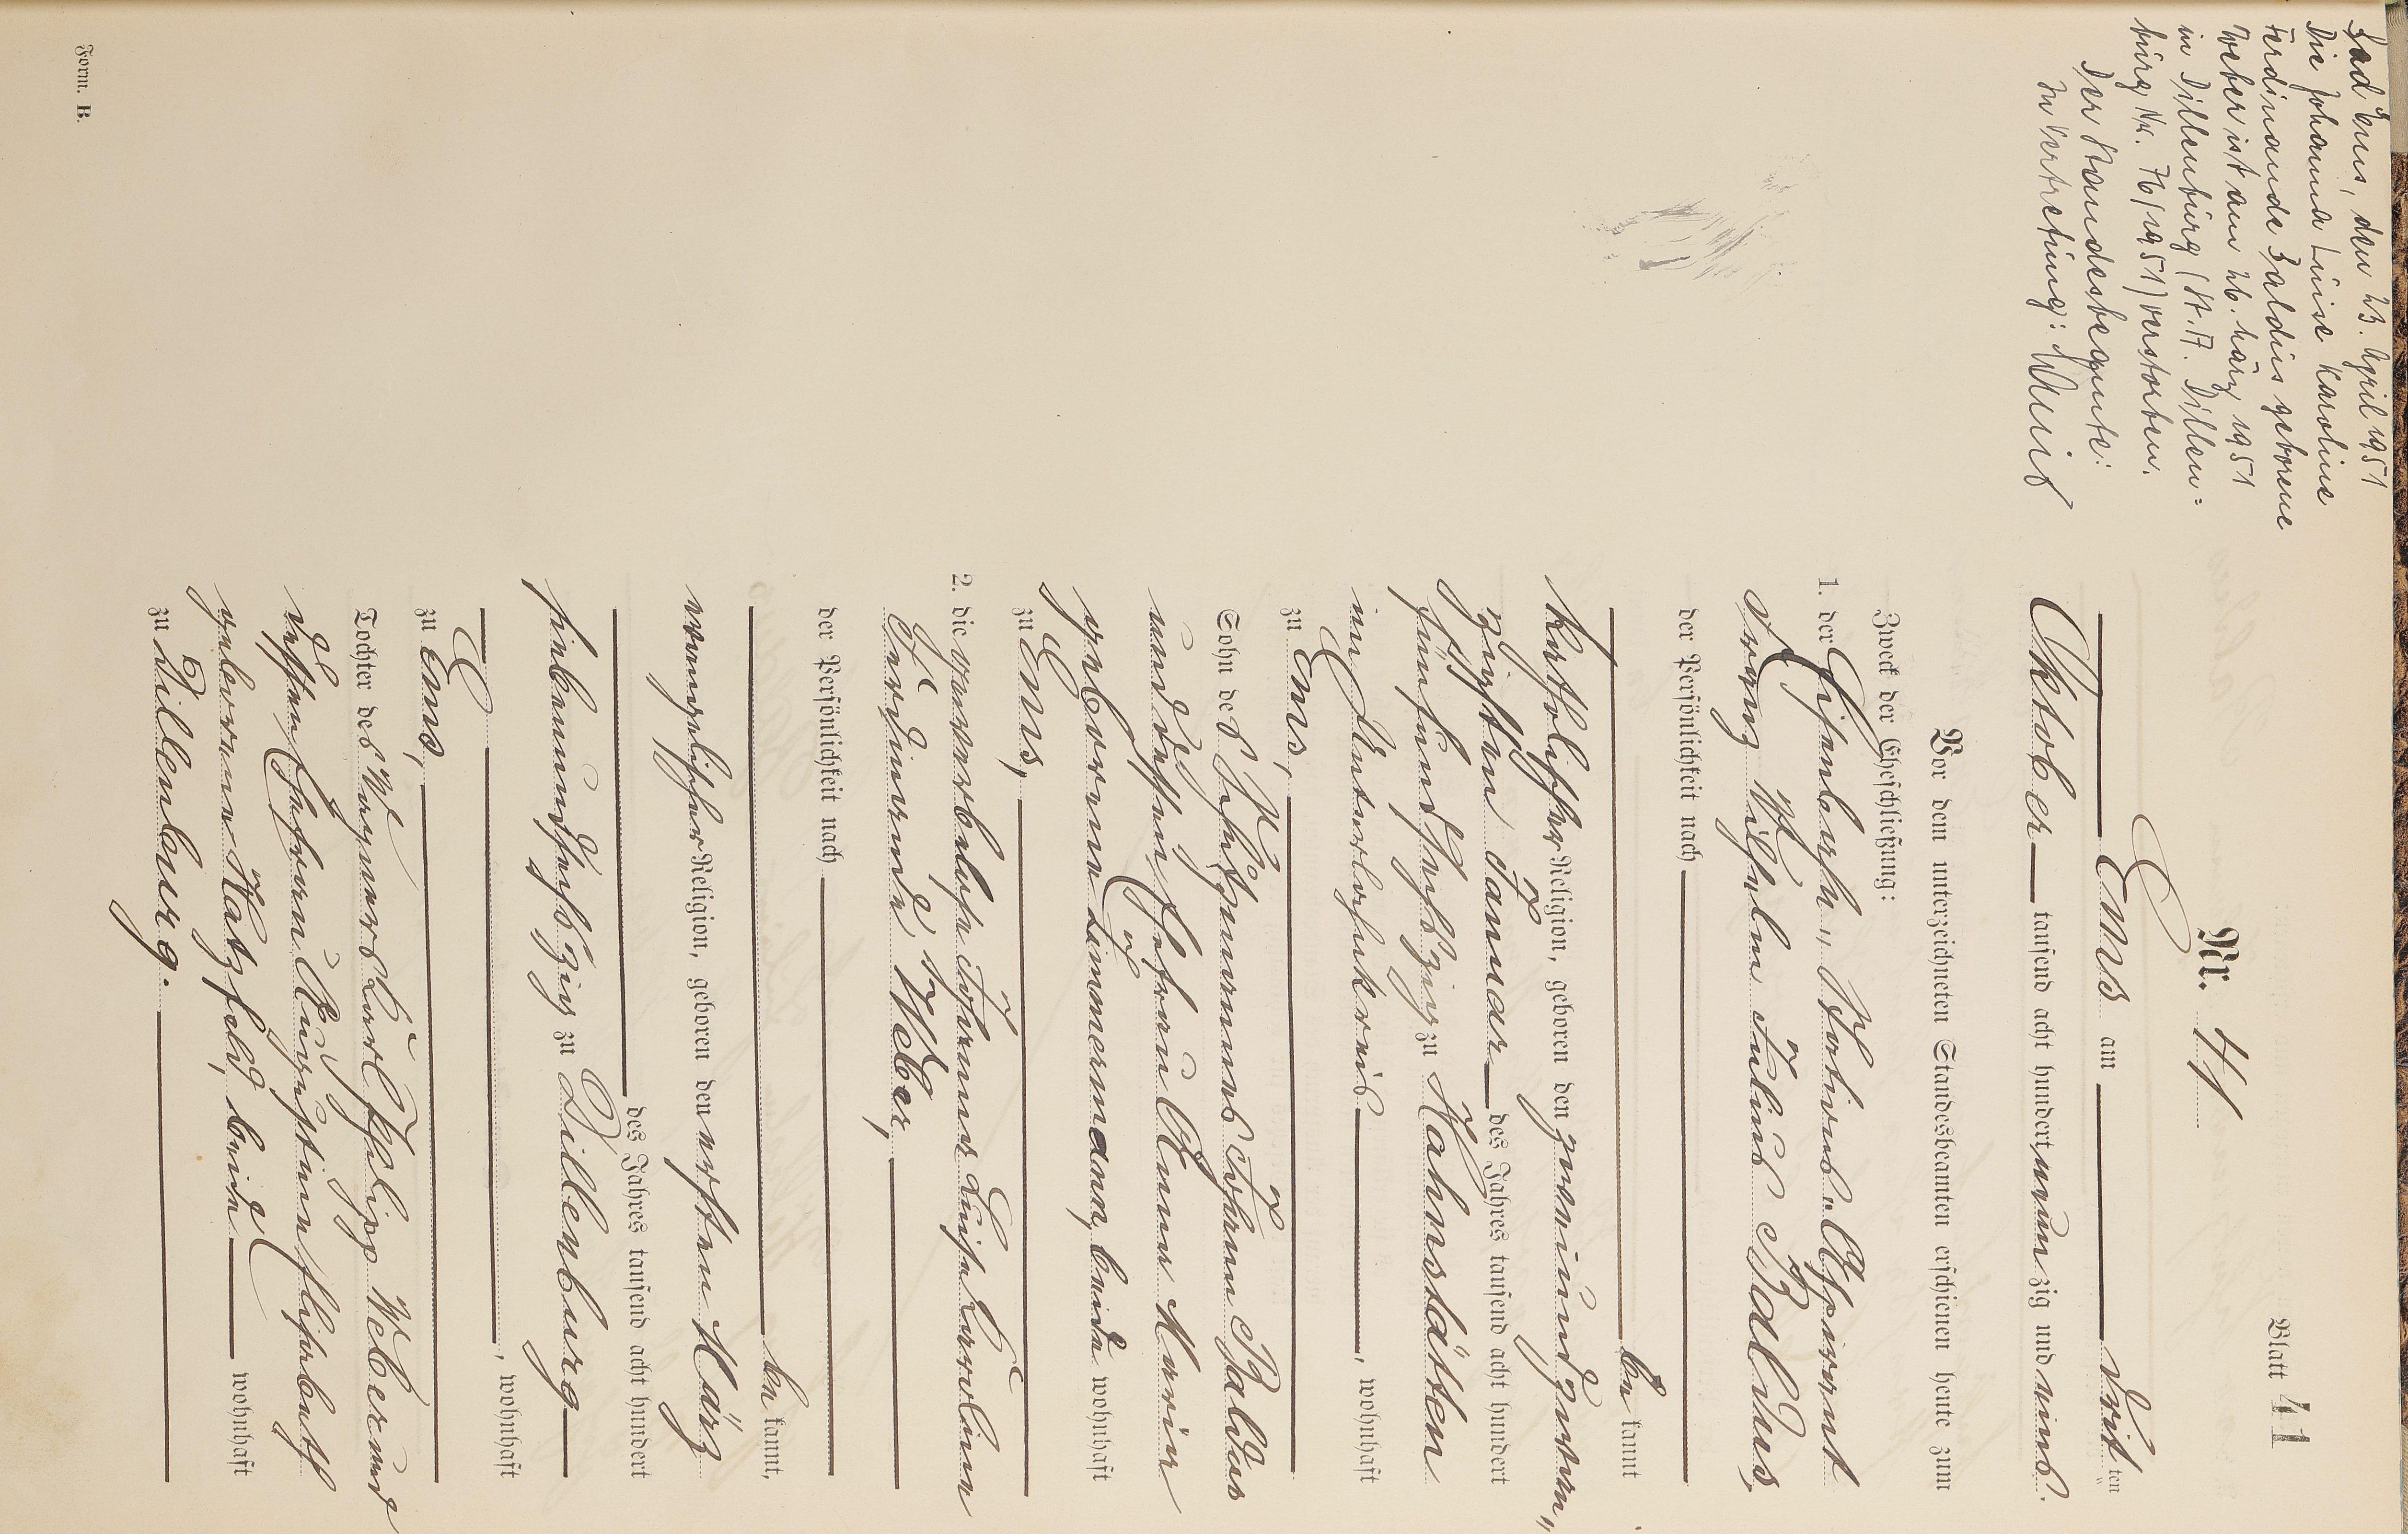 Blatt 41
Nr. 41
Ems am dritten
Oktober tausend acht hundert neunzig und eins.
Vor dem unterzeichneten Standesbeamten erschienen heute zum
Zweck der Eheschließung:
1. der Eisenbahn-Stations-Aspirant
Franz Wilhelm Julius Baldus,
der Persönlichkeit nach
be kannt
katholischer Religion, geboren den zweiundzwan-
zigsten Januar des Jahres tausend acht hundert
fünfundsechszig zu Hahnstätten
im Unterlahnkreis, wohnhaft
zu Ems,
Sohn des Johann Baldus
und dessen Ehefrau Anna Maria
geborene Zimmermann, beide wohnhaft
zu Ems,
2. die gewerbelose Johanna Luise Karoline
Ferdinande Weber,
der Persönlichkeit nach
be kannt,
evangelischer Religion, geboren den ersten März
des Jahres tausend acht hundert
siebenundsechszig zu Dillenburg
, wohnhaft
zu Ems,
Tochter des Wagners Karl Philipp Weber und
dessen Ehefrau Augustine Elisabeth
geborene Hatzfeld, beide wohnhaft
zu Dillenburg.
Bad Ems, den 23. April 1951
Die Johanna Luise Karoline
Ferdinande Baldus geborene
Weber ist am 26. März 1951
in Dillenburg (St.A. Dillen-
burg Nr. 76/1951) verstorben.
Der Standesbeamte:
In Vertretung:
Form. B.